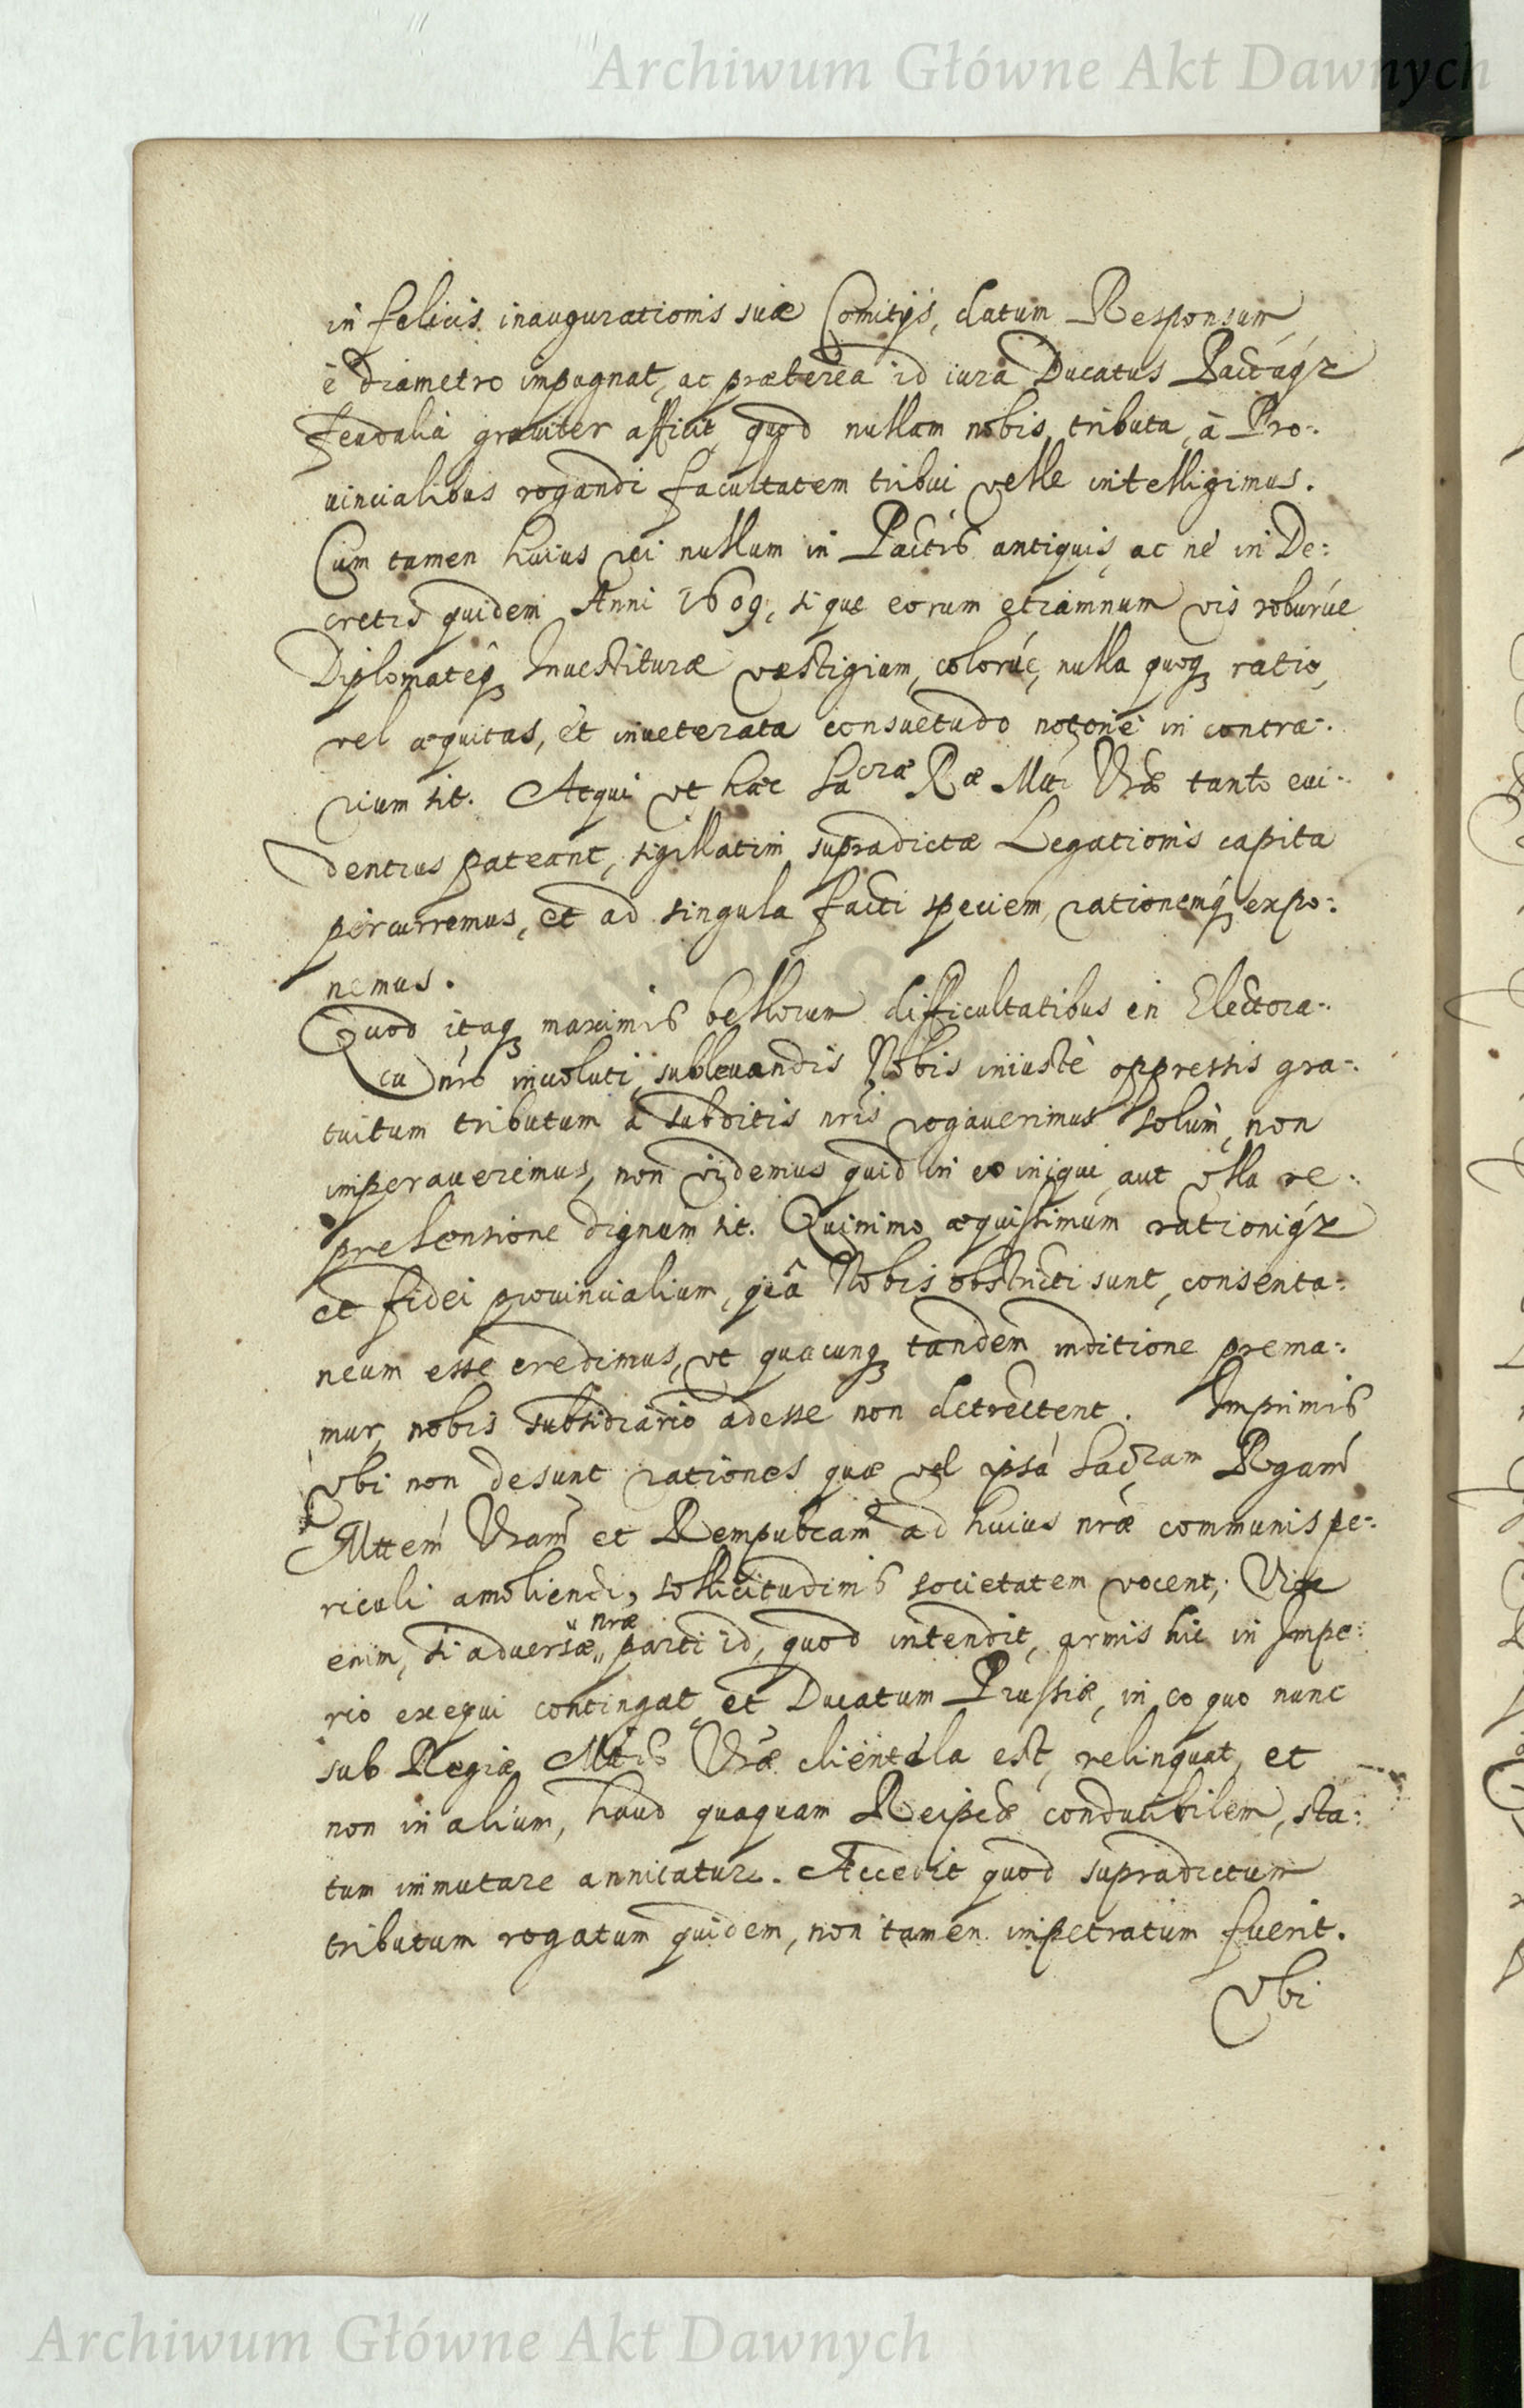 Archiwum Główne Akt Dawnych
in felicis inaugurationis suæ Comitijs, datum Responsum
è diametro impugnat, ac præterea id iura Ducatus Pactáqꝫ
feudalia grauiter afficit, quod nullam nobis, tributa, à Pro-:
uincialibus rogandi facultatem tribui velle intelligimus.
Cum tamen huius rei nullum in Pactis antiquis, ac ne in De:
cretis quidem Anni 1609, si quæ eorum etiamnum vis roburúe
Diplomateqꝫ Inuestituræ væstigium, colorúe, nulla quoqꝫ ratio,
vel æquitas, et inueterata consuetudo in contra-:
rium sit. Atqui vt hæc Sacræ Ræ Mti Vræ tanto eui-:
dentius pateant, sigillatim supradictæ Legationis capita
percurremus, et ad singula facti speciem, rationemqꝫ expo-:
nemus.
Quod itaqꝫ maximis bellorum difficultatibus in Electora-:
tu nr̃o inuoluti, subleuandis Nobis iniustè oppressis gra-:
tuitum tributum à subditis nr̃is rogauerimus solùm, non
imperauerimus, non videmus quid in eo iniqui, aut vlla re-:
prehensione dignum sit. Quinimo æquissimum rationiqꝫ
et fidei prouincialium, quâ Nobis obstricti sunt, consenta-:
neum esse credimus, vt quacunqꝫ tandem inditione prema-:
mur, nobis subsidiario adesse non detrectent. Imprimis
vbi non desunt rationes quæ vel ipsá Sacram Regam̃
Mttem̃ Vram̃ et Rempubcam̃ ad huius nræ communis pe-:
riculi amoliendi, sollicitudinis societatem vocent; Vix
enim, si aduersæ nræ parti id, quod intendit, armis hic in Impe:
rio exequi contingat, et Ducatum Prussiæ, in eo quo nunc
sub Regiæ Mttis Vræ clientela est, relinquat, et
non in alium, haud quaquam Reipcæ conducibilem, sta:
tum immutare annitatur. Accedit quod supradictum
tributum rogatum quidem, non tamen impetratum fuerit.
Vbi
Archiwum Główne Akt Dawnych